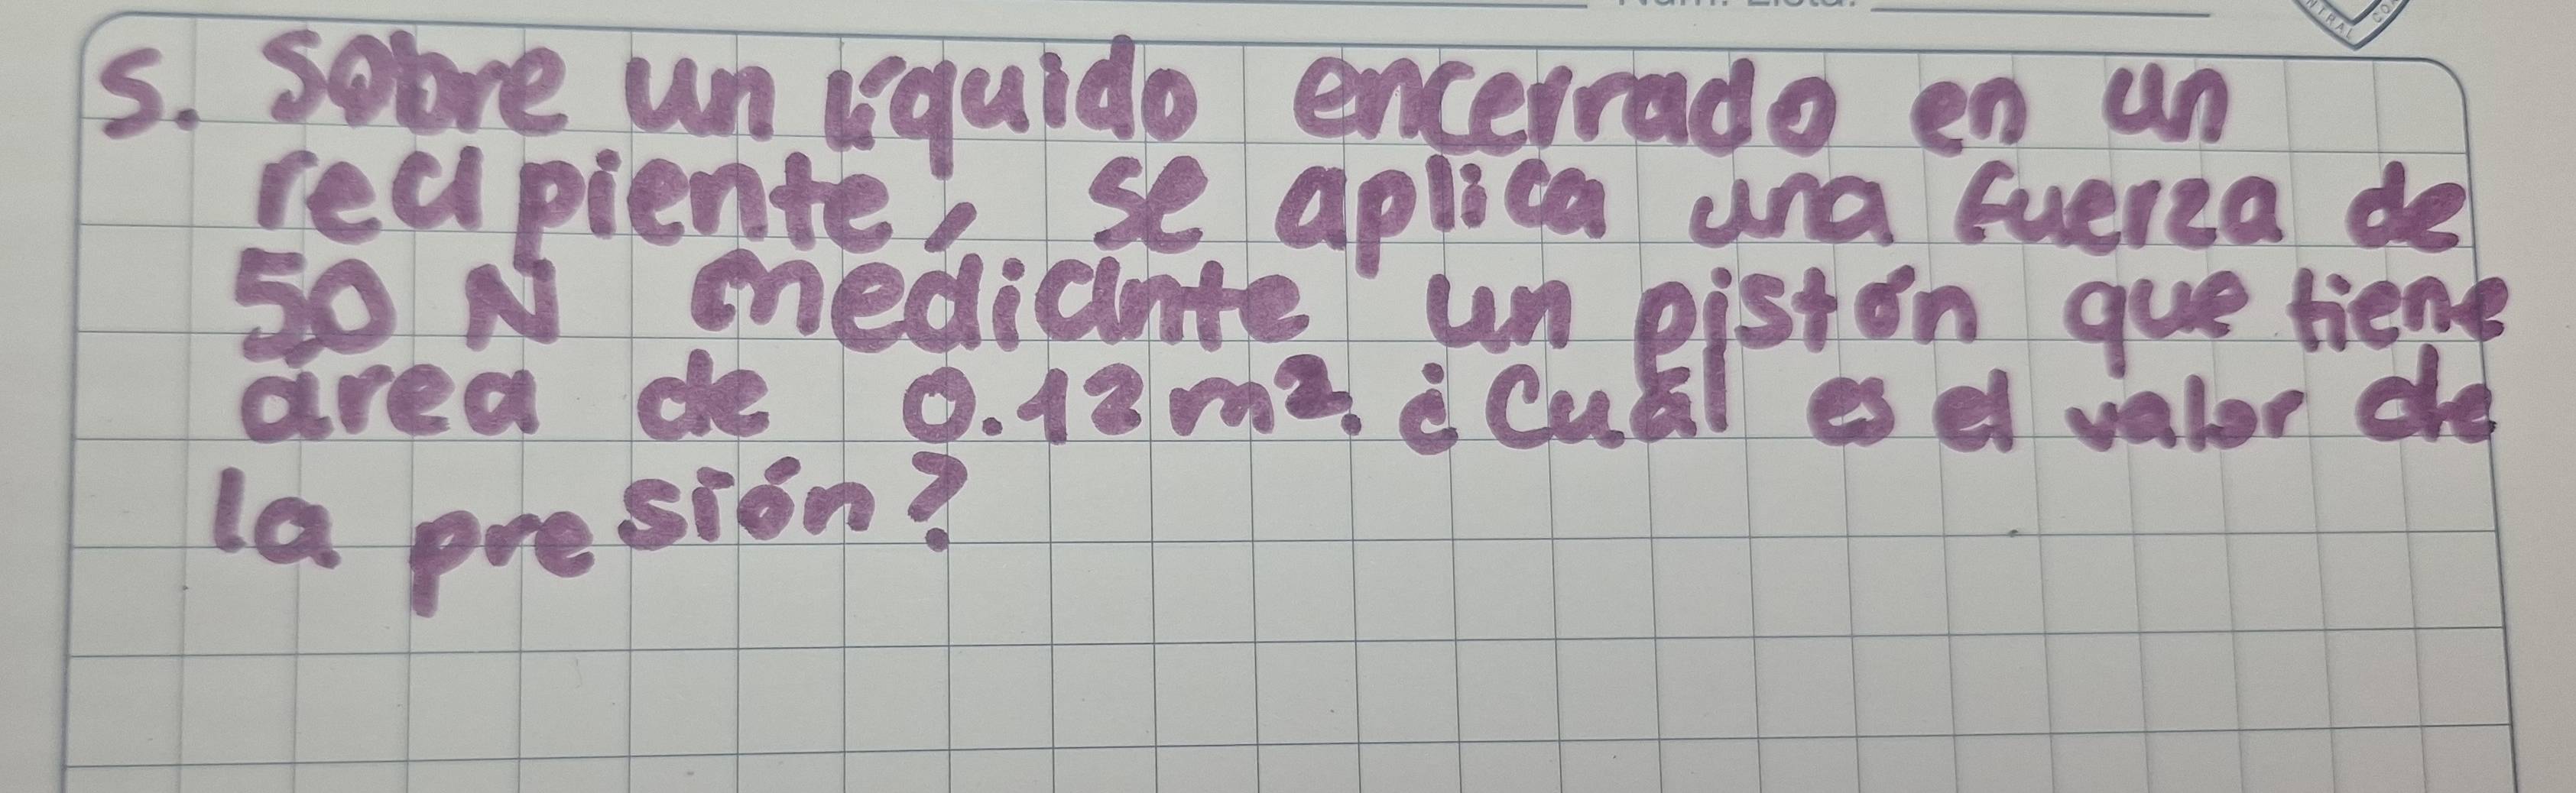 Núm. Lista:
NTRAL CO
5. Sobre un líquido encerrado en un
recipiente, se aplica una fuerza de
50 N mediante un pistón que tiene
área de 0.12 m². ¿Cuál es el valor de
la presión?